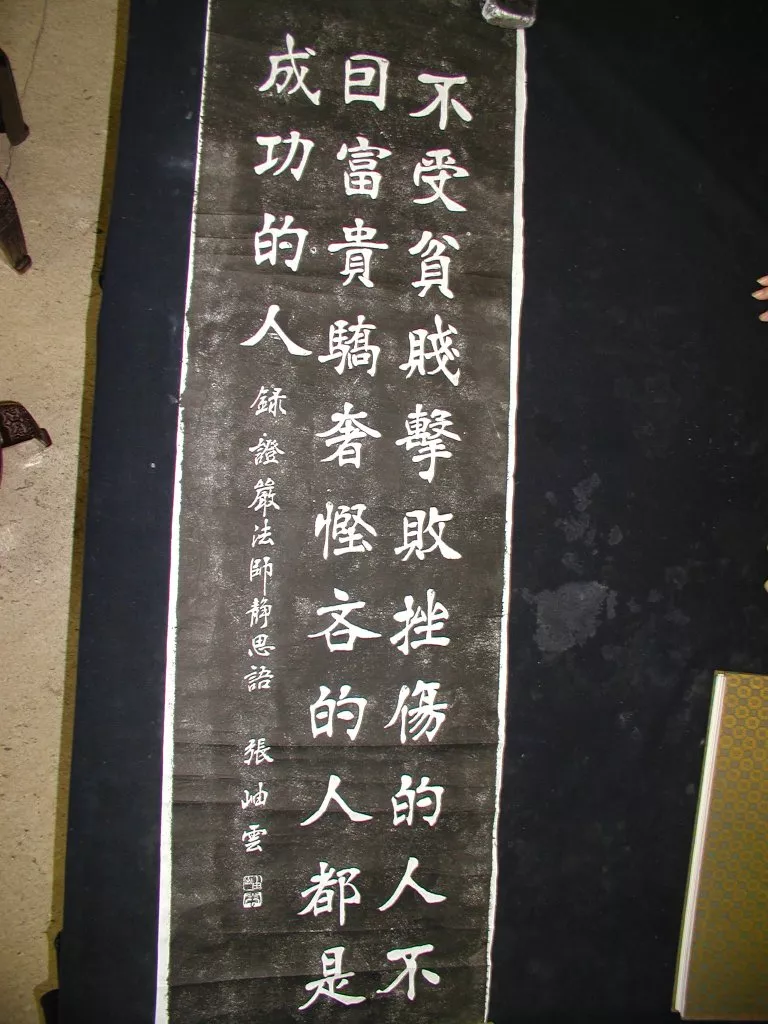 不受貧賤擊敗挫傷的人不
因富貴驕奢慳吝的人都是
成功的人
録證嚴法師靜思語 張岫雲